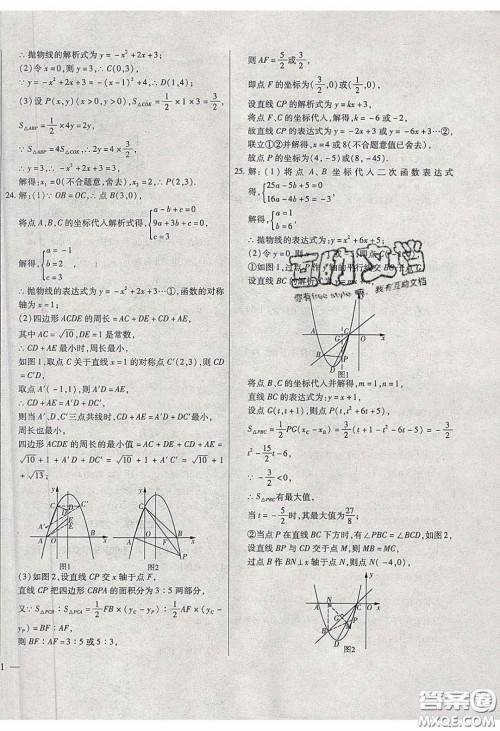 ∴抛物线的解析式为y=-x²+2x+3;
(2)令x=0,则y=3,∴C(0,3),
∵y=-x²+2x+3=-(x-1)²+4,∴D(1,4);
(3)设P(x,y)(x>0,y>0),S△COE=1/2×1×3=3/2,
S△ABP=1/2×4y=2y,
∵S△ABP=4S△COE,∴2y=4×3/2,
∴y=3,∴-x²+2x+3=3,
解得:x₁=0(不合题意,舍去),x₂=2,∴P(2,3).
24.解:(1)∵OB=OC,∴点B(3,0),
将点A、B、C的坐标代入解析式得,{a-b+c=0
9a+3b+c=0
c=3
解得,{a=-1
b=2
c=3
∴抛物线的表达式为y=-x²+2x+3…①,函数的对称
轴为x=1;
(2)四边形ACDE的周长=AC+DE+CD+AE,
其中AC=√10,DE=1是常数,
∴CD+AE最小时,周长最小,
如图1,取点C关于直线x=1的对称点C'(2,3),则
CD=C'D,
取点A'(-1,1),则A'D=AE,
∴CD+AE=A'D+DC',
则当A'、D、C'三点共线时,CD+AE=A'D+DC'最小,
周长也最小,
四边形ACDE的周长的最小值=AC+DE+CD+AE=
√10+1+A'D+DC'=√10+1+A'C'=√10+1
+√13;
图1
图2
(3)如图2,设直线CP交x轴于点F,
直线CP把四边形CBPA的面积分为3:5两部分,
又∵S△PCB:S△PCA=1/2FB×(yC-yP):1/2AF×(yC-
yP)=BF:AF,
则BF:AF=3:5或5:3,
则AF=5/2或3/2,
即点F的坐标为(3/2,0)或(1/2,0),
设直线CP的解析式为y=kx+3,
将点F、C的坐标代入,解得:k=-2或-6,
故直线CP的表达式为y=-2x+3或y=-6x+3…②
联立①②并解得:x=4或8(不合题意值已舍去),
故点P的坐标为(4,-5)或(8,-45).
25.解:(1)将点A、B坐标代入二次函数表达式
得,{25a-5b+5=0
16a-4b+5=-3
解得,{
∴抛物线的表达式为:y=x²+6x+5;
(2)令y=0,
①如图1,过点P作y轴的平行线交BC于点G,
设直线BC的解析
百明文档
您有free style 吗,我有互动文档
图1
将点B、C的坐标代入并解得,m=1,n=1,
直线BC的表达式为:y=x+1,
设点G(t,t+1),则点P(t,t²+6t+5),
S△PBC=1/2PG(xC-xB)=3/2(t+1-t²-6t-5)=-3/2
t²-15/2t-6,
∵-3/2<0,
∴S△PBC有最大值,
当t=-5/2时,其最大值为27/8;
②当点P在直线BC下方时,有∠PBC=∠BCD,
设直线BP与CD交于点M,则MC=MB,
过点B作BN⊥x轴于点N(-4,0),
图2
1
答案圈
MXQE.COM